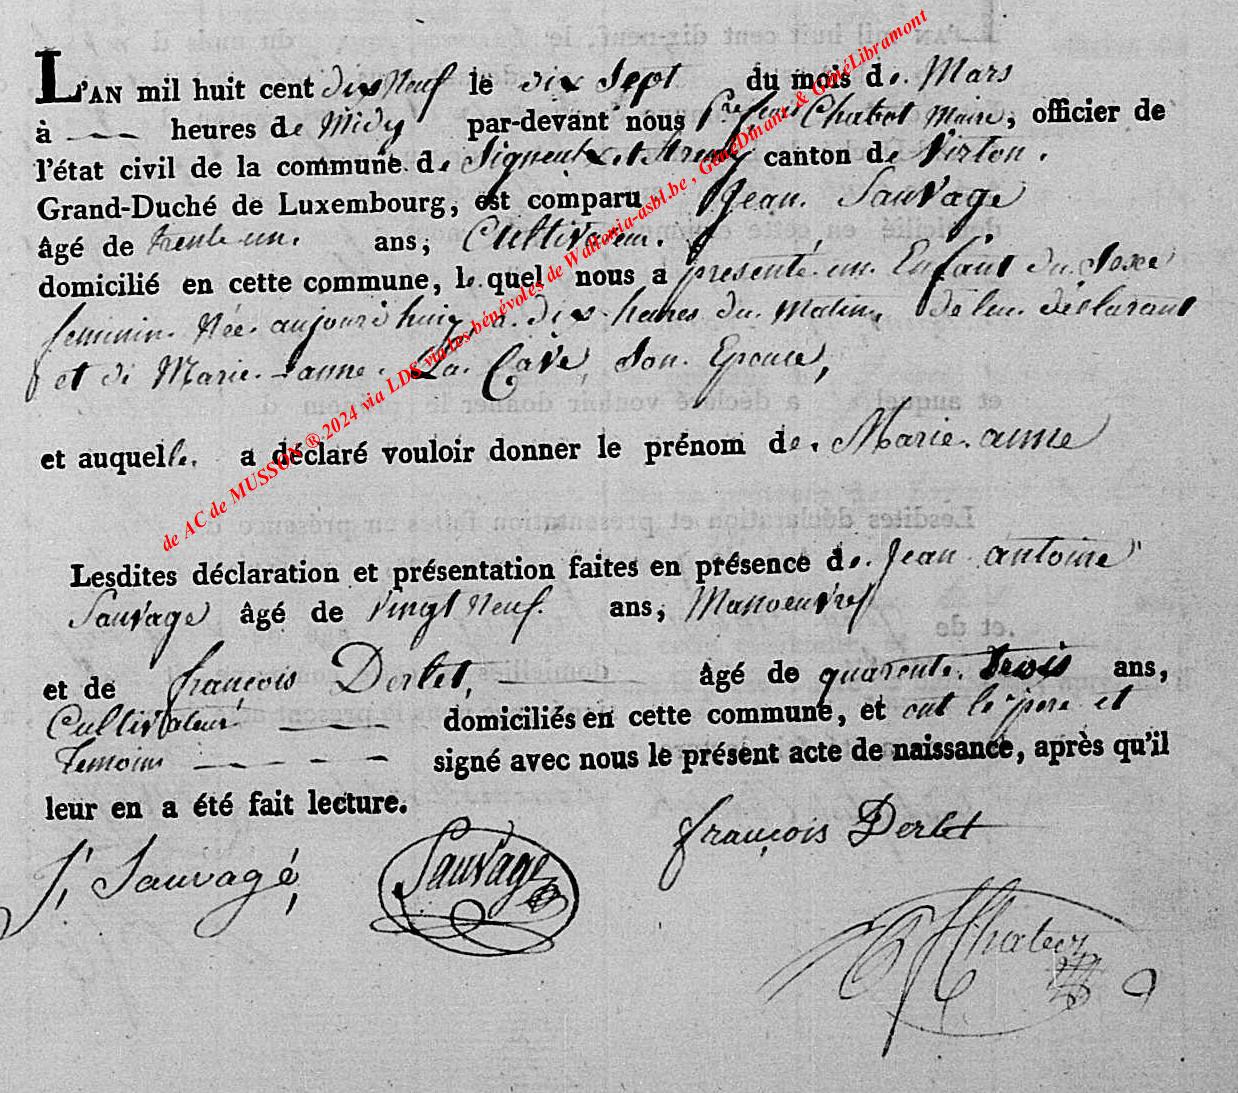 L'AN mil huit cent dix Neuf le dix Sept du mois de. Mars
à heures de Midy par-devant nous Chabot Maire, officier de
l'état civil de la commune de Signeulx et canton de Virton.
Grand-Duché de Luxembourg, est comparu Jean. Sauvage
âgé de trente un. ans, Cultivateur.
domicilié en cette commune, lequel nous a presenté un. Enfant du. Sexe
feminin. Née. aujourd'huig a. dix. heures du. Matin, De lui. déclarant
et de Marie. Janne. La. Cave, Son. Epouse,
et auquelle. a déclaré vouloir donner le prénom de. Marie. anne
Lesdites déclaration et présentation faites en présence de. Jean antoine
Sauvage âgé de Vingt Neuf. ans, Manoeuvre
et de françois Derlet, âgé de quarente. trois ans,
Cultivateur domiciliés en cette commune, et ont le pere et
Temoins signé avec nous le présent acte de naissance, après qu'il
leur en a été fait lecture.
françois Derlet
J, Sauvagé, Sauvage
de AC de MUSSON ® 2024 via LDS via les bénévoles de Wallonia-asbl.be , GénéDinant & GénéLibramont